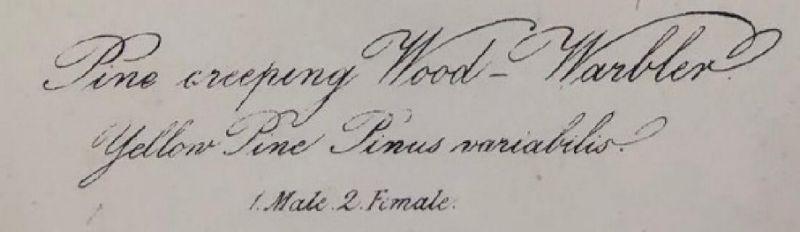 Pine creeping Wood-Warbler.
Yellow Pine Pinus variabilis.
1. Male. 2. Female.